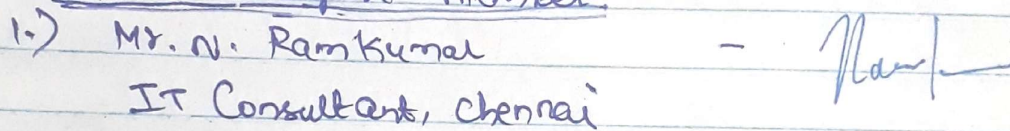 1.) Mr. N. Ramkumar -
IT Consultant, Chennai